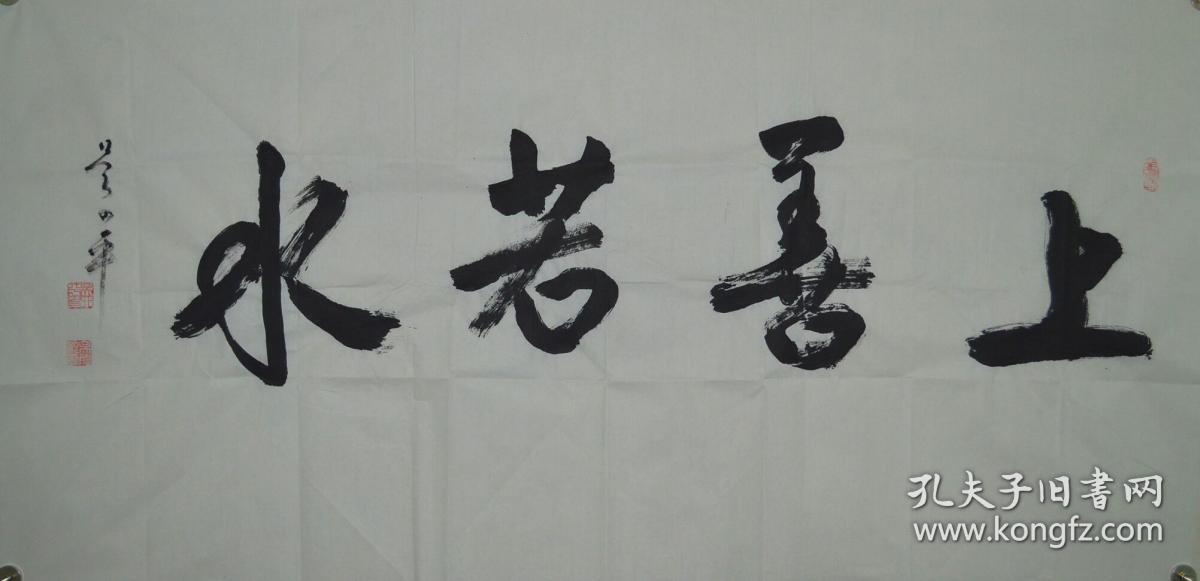 上善若水
孔夫子旧書网
www.kongfz.com